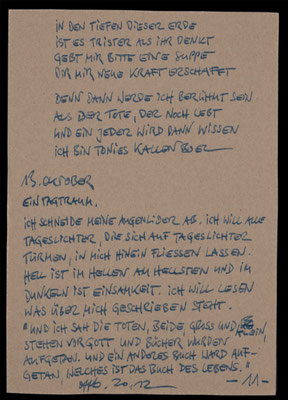 IN DEN TIEFEN DIESER ERDE
IST ES TRISTER ALS IHR DENKT
GEBT MIR BITTE EINE SUPPE
DIE MIR NEUE KRAFT ERSCHAFFT
DENN DANN WERDE ICH BERÜHMT SEIN
ALS DER TOTE, DER NOCH LEBT
UND EIN JEDER WIRD DANN WISSEN
ICH BIN TONIES KALLENBOEL
13. OKTOBER
EINTAGTRAUM.
ICH SCHNEIDE MEINE AUGENLIDER AB. ICH WILL ALLE
TAGESLICHTER, DIE SICH AUF TAGESLICHTER
TÜRMEN, IN MICH HINEIN FLIESSEN LASSEN.
HELL IST IM HELLEN AM HELLSTEN UND IM
DUNKELN IST EINSAMKEIT. ICH WILL LESEN
WAS ÜBER MICH GESCHRIEBEN STEHT.
"UND ICH SAH DIE TOTEN, BEIDE, GROSS UND KLEIN,
STEHEN VOR GOTT UND BÜCHER WURDEN
AUFGETAN. UND EIN ANDERES BUCH WARD AUF-
GETAN, WELCHES IST DAS BUCH DES LEBENS."
20,12
- 11 -